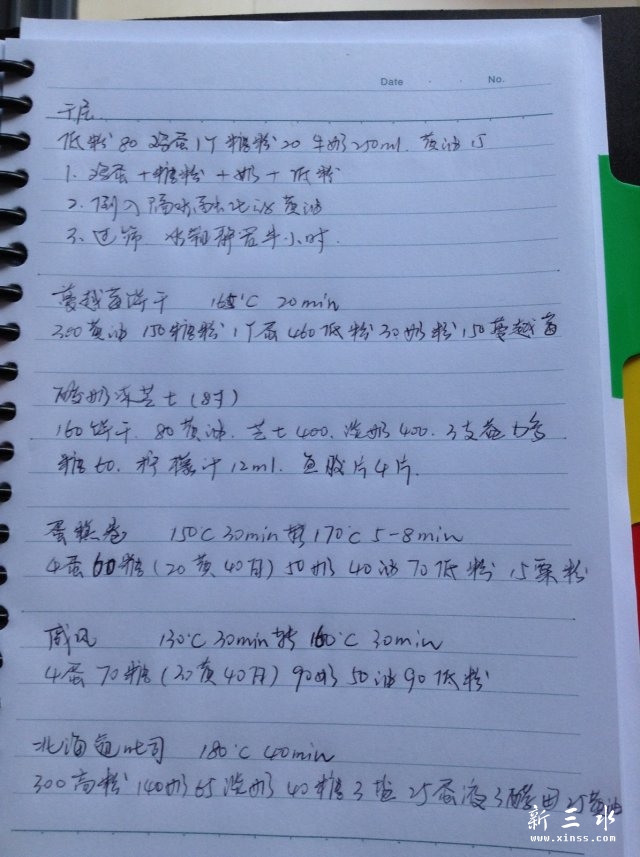 Date . . No.
千层
低粉80 鸡蛋1个 糖粉20 牛奶250ml. 黄油15
1. 鸡蛋+糖粉+奶+低粉
2. 倒入隔水融化的黄油
3. 过筛 冰箱静置半小时.
蔓越莓饼干 165℃ 20min
200黄油 150糖粉 1个蛋 460低粉 30奶粉 150蔓越莓
酸奶冻芝士(8寸)
160饼干. 80黄油. 芝士400. 淡奶400.
糖60. 柠檬汁12ml. 鱼胶片4片.
蛋糕卷 150℃ 30min转170℃ 5-8min
4蛋60糖(20黄40白)50奶 40油 70低粉 15粟粉
戚风 130℃ 30min转160℃ 30min
4蛋 70糖(30黄40白)90奶 50油 90低粉
北海道吐司 180℃ 40min
300高粉 140奶 65淡奶 40糖 3盐 25蛋液 3酵母 25黄油
新三水
www.xinss.com